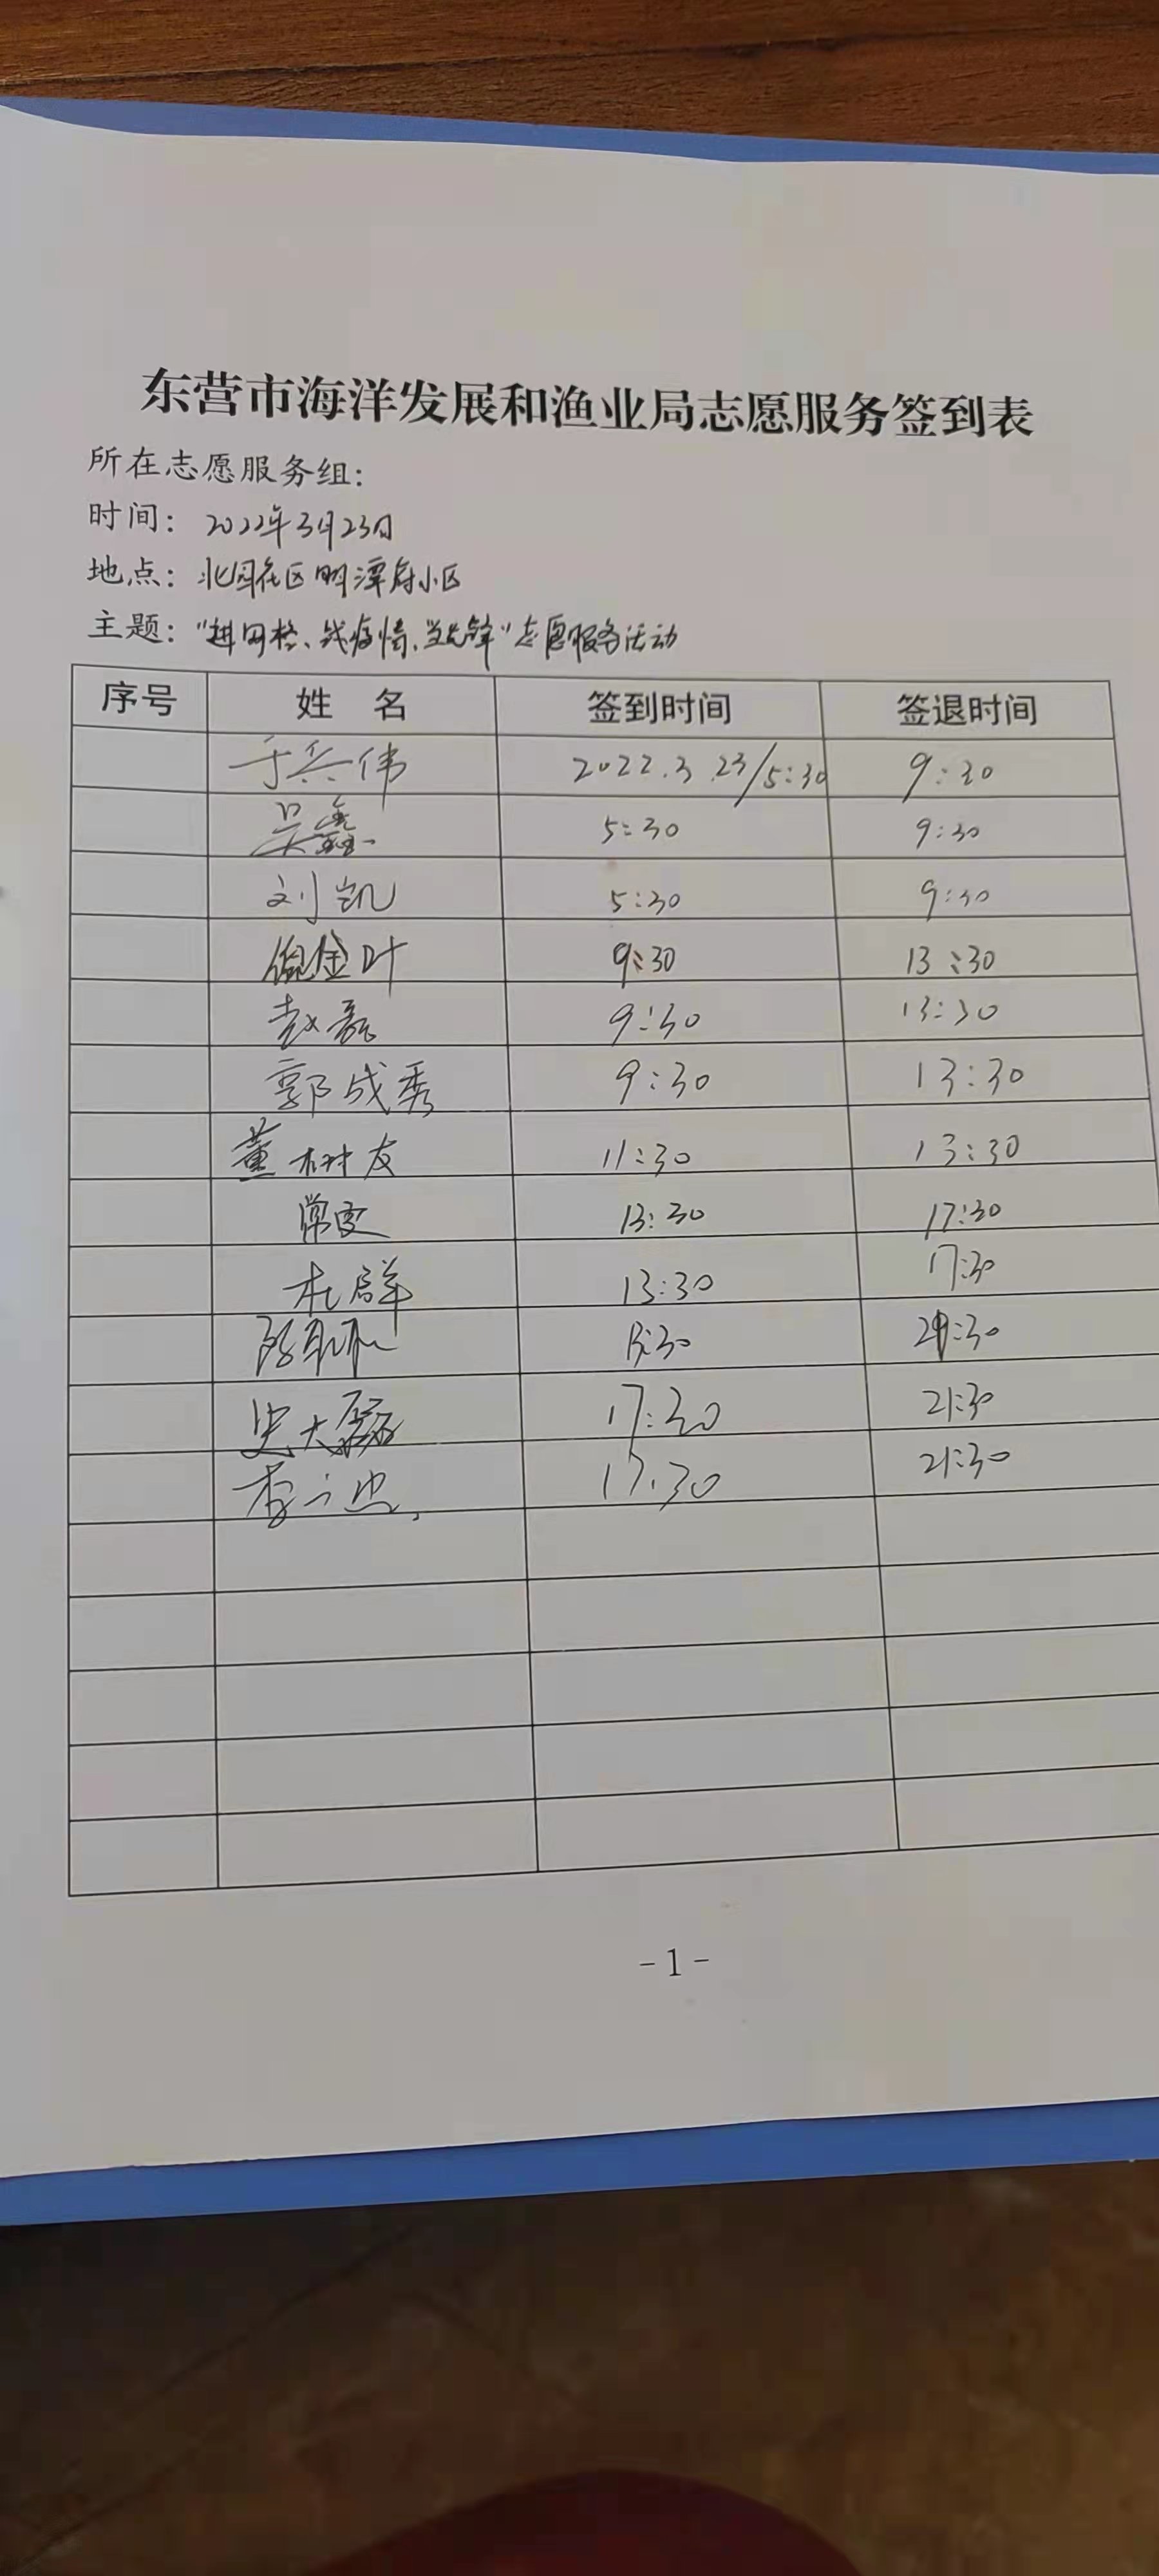 东营市海洋发展和渔业局志愿服务签到表
所在志愿服务组:
时间: 2022年3月23日
地点: 北园社区明潭府小区
主题: "进网格、战疫情、当先锋"志愿服务活动
序号 姓 名 签到时间 签退时间
于兵伟 2022.3.23/5:30 9:30
吴鑫 5:30 9:30
刘凯 5:30 9:30
倪金叶 9:30 13:30
赵磊 9:30 13:30
郭成秀 9:30 13:30
董树友 11:30 13:30
常雯 13:30 17:30
杜群 13:30 17:30
17:30
史大磊 17:30 21:30
李 17:30 21:30
-1-